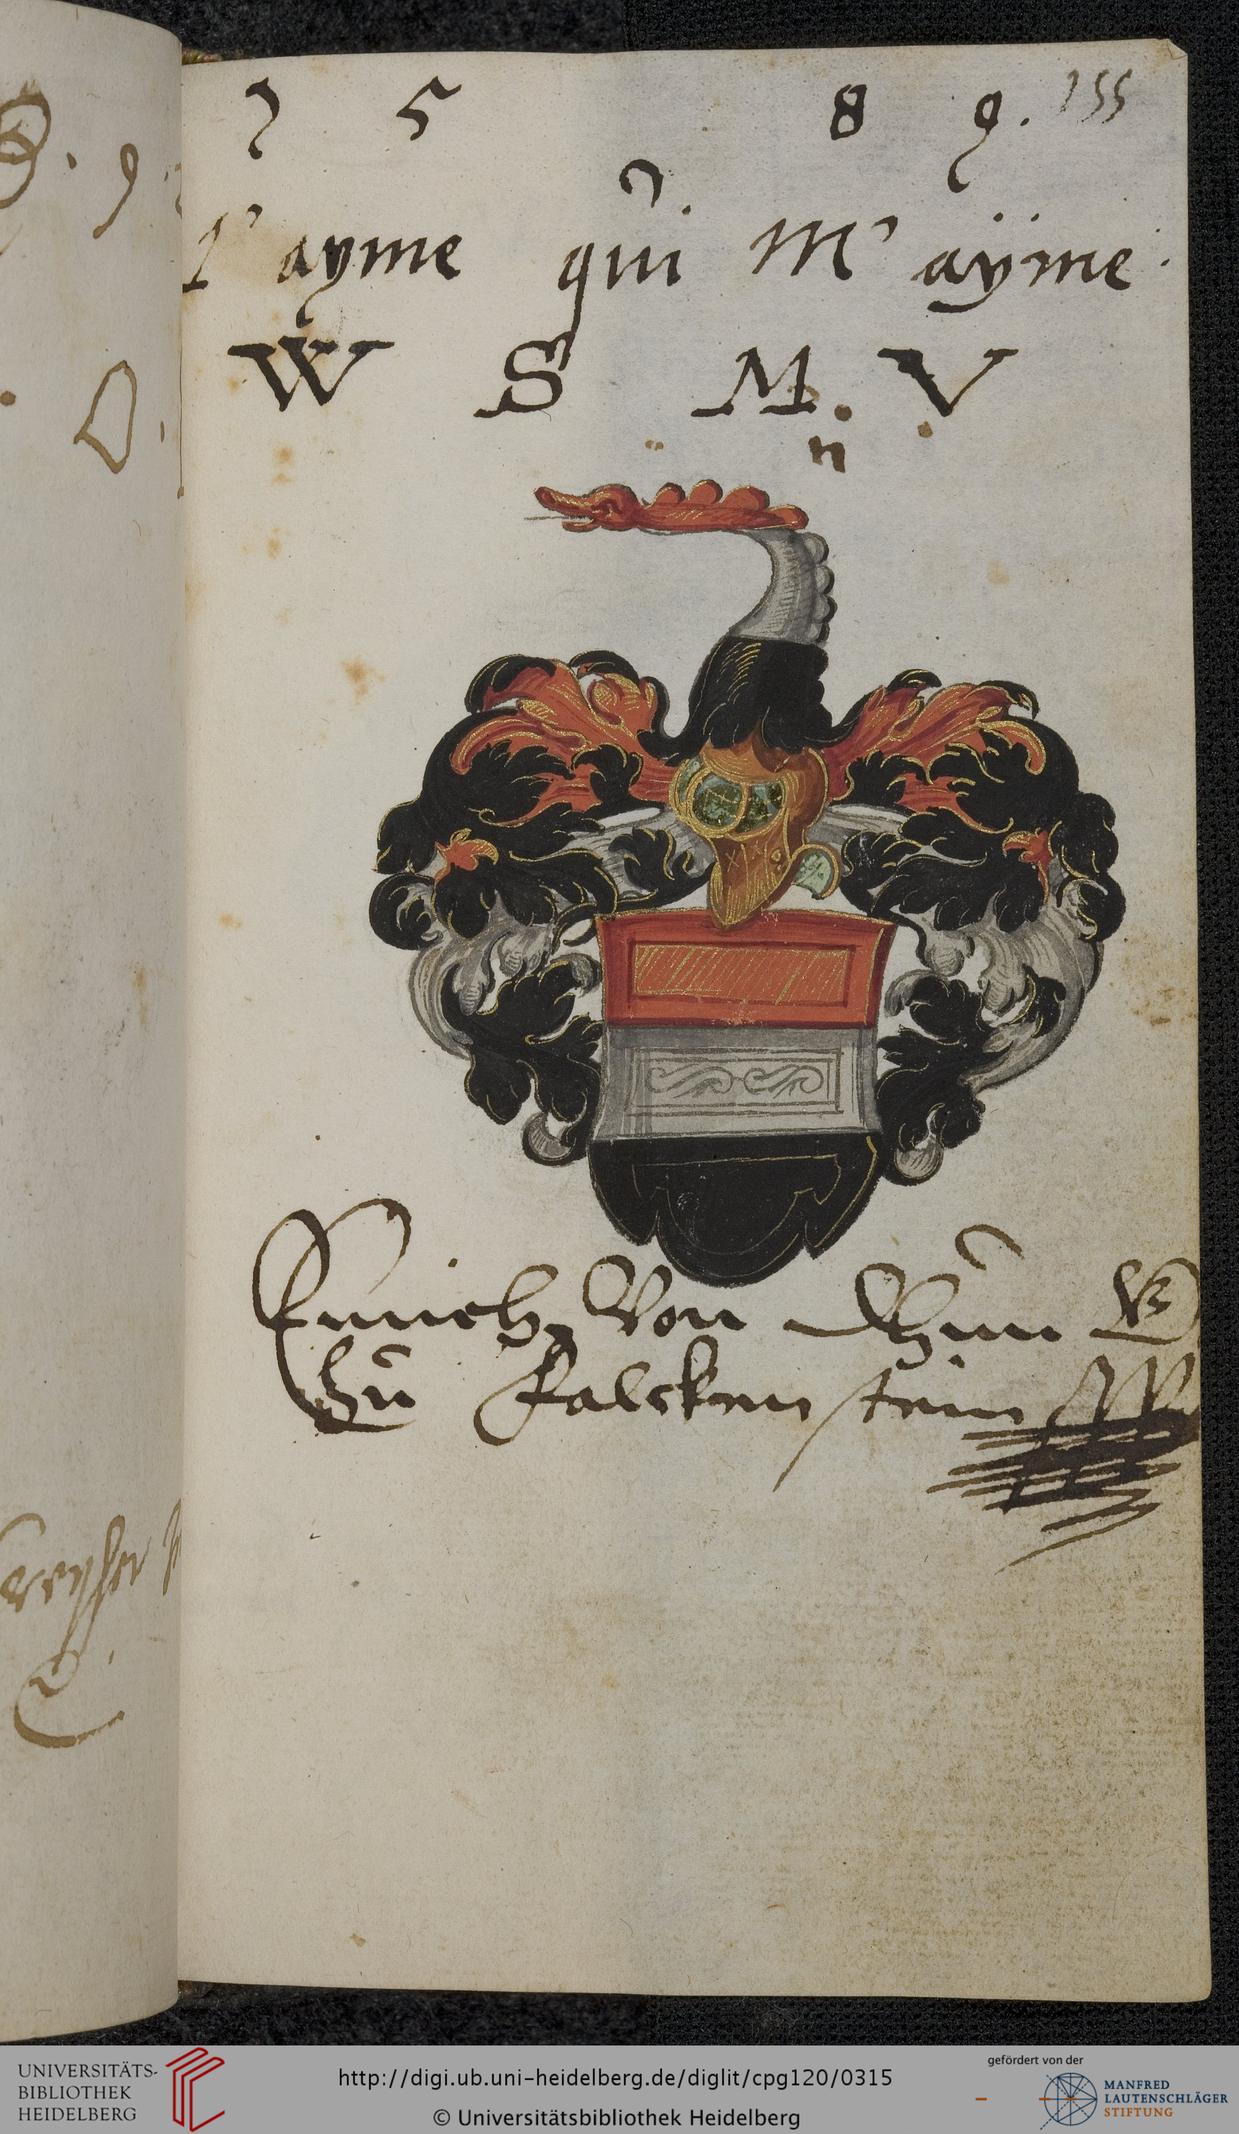 1 5 8 9. 155
J' ayme qui M' ayme.
W S M. V
n
Emich Von Thun
zu Falckenstein
UNIVERSITÄTS-
BIBLIOTHEK
HEIDELBERG
http://digi.ub.uni-heidelberg.de/diglit/cpg120/0315
© Universitätsbibliothek Heidelberg
gefördert von der
MANFRED
LAUTENSCHLÄGER
STIFTUNG